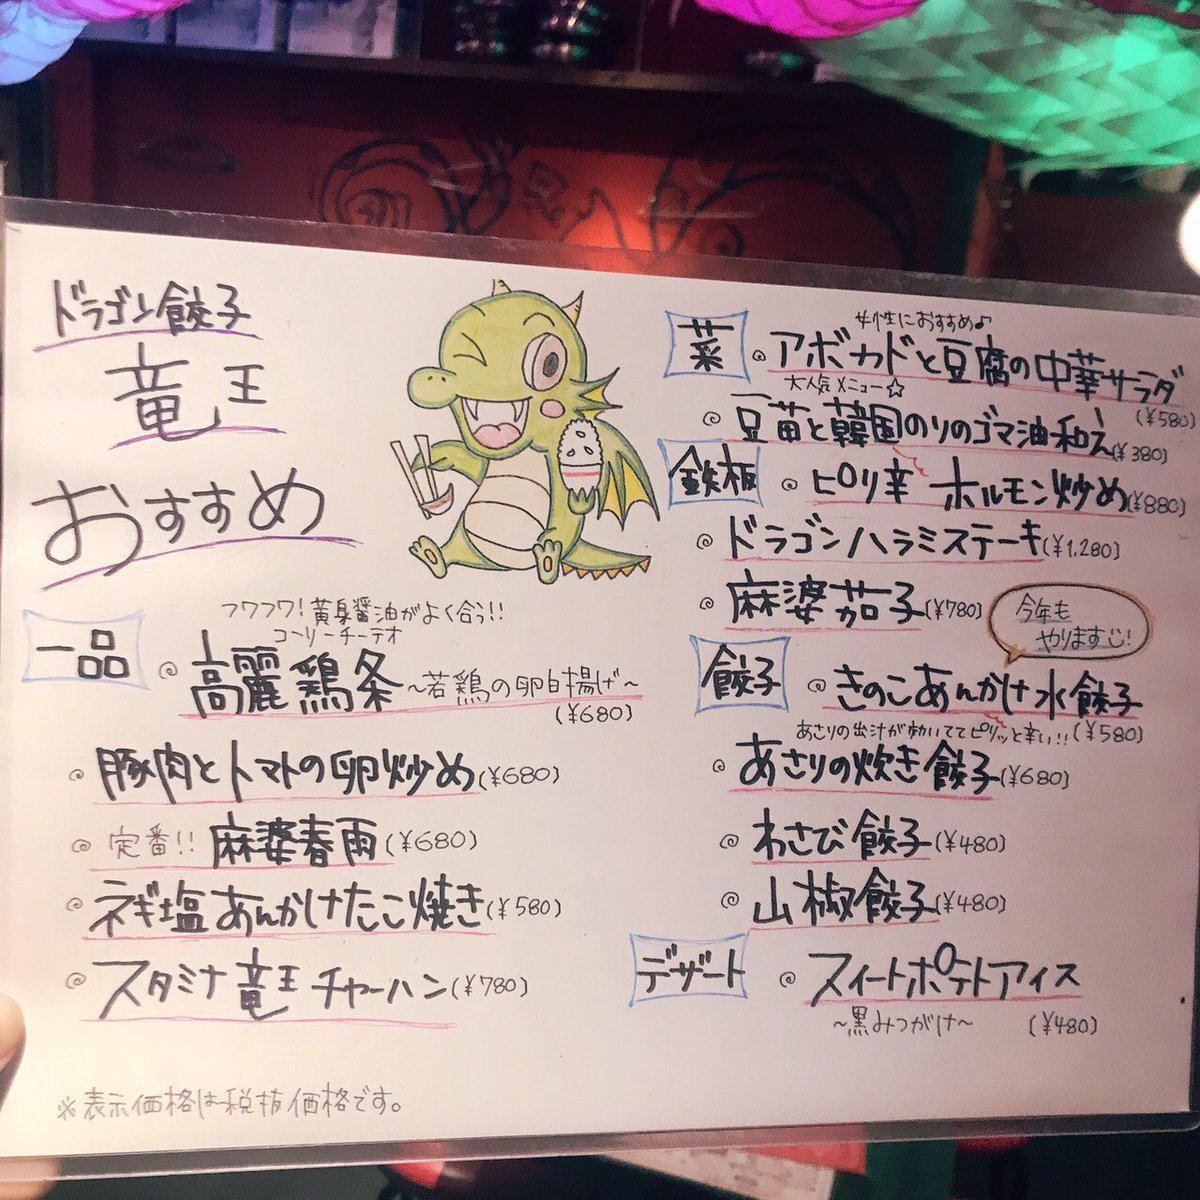 ドラゴン餃子
竜王
おすすめ
一品
フワフワ！黄身醤油がよく合う!!
コーリーチーテオ
高麗鶏条～若鶏の卵白揚げ～
(¥680)
豚肉とトマトの卵炒め(¥680)
定番!! 麻婆春雨(¥680)
ネギ塩あんかけたこ焼き(¥580)
スタミナ竜王チャーハン(¥780)
※表示価格は税抜価格です。
菜
女性におすすめ♪
アボカドと豆腐の中華サラダ
(¥580)
大人気メニュー☆
豆苗と韓国のりのゴマ油和え(¥380)
鉄板
ピリ辛 ホルモン炒め(¥880)
ドラゴンハラミステーキ(¥1,280)
麻婆茄子(¥780)
今年も
やります!
餃子
きのこあんかけ水餃子
(¥580)
あさりの出汁が効いててピリッと辛い!!
あさりの炊き餃子(¥680)
わさび餃子(¥480)
山椒餃子(¥480)
デザート
スイートポテトアイス
～黒みつがけ～ (¥480)